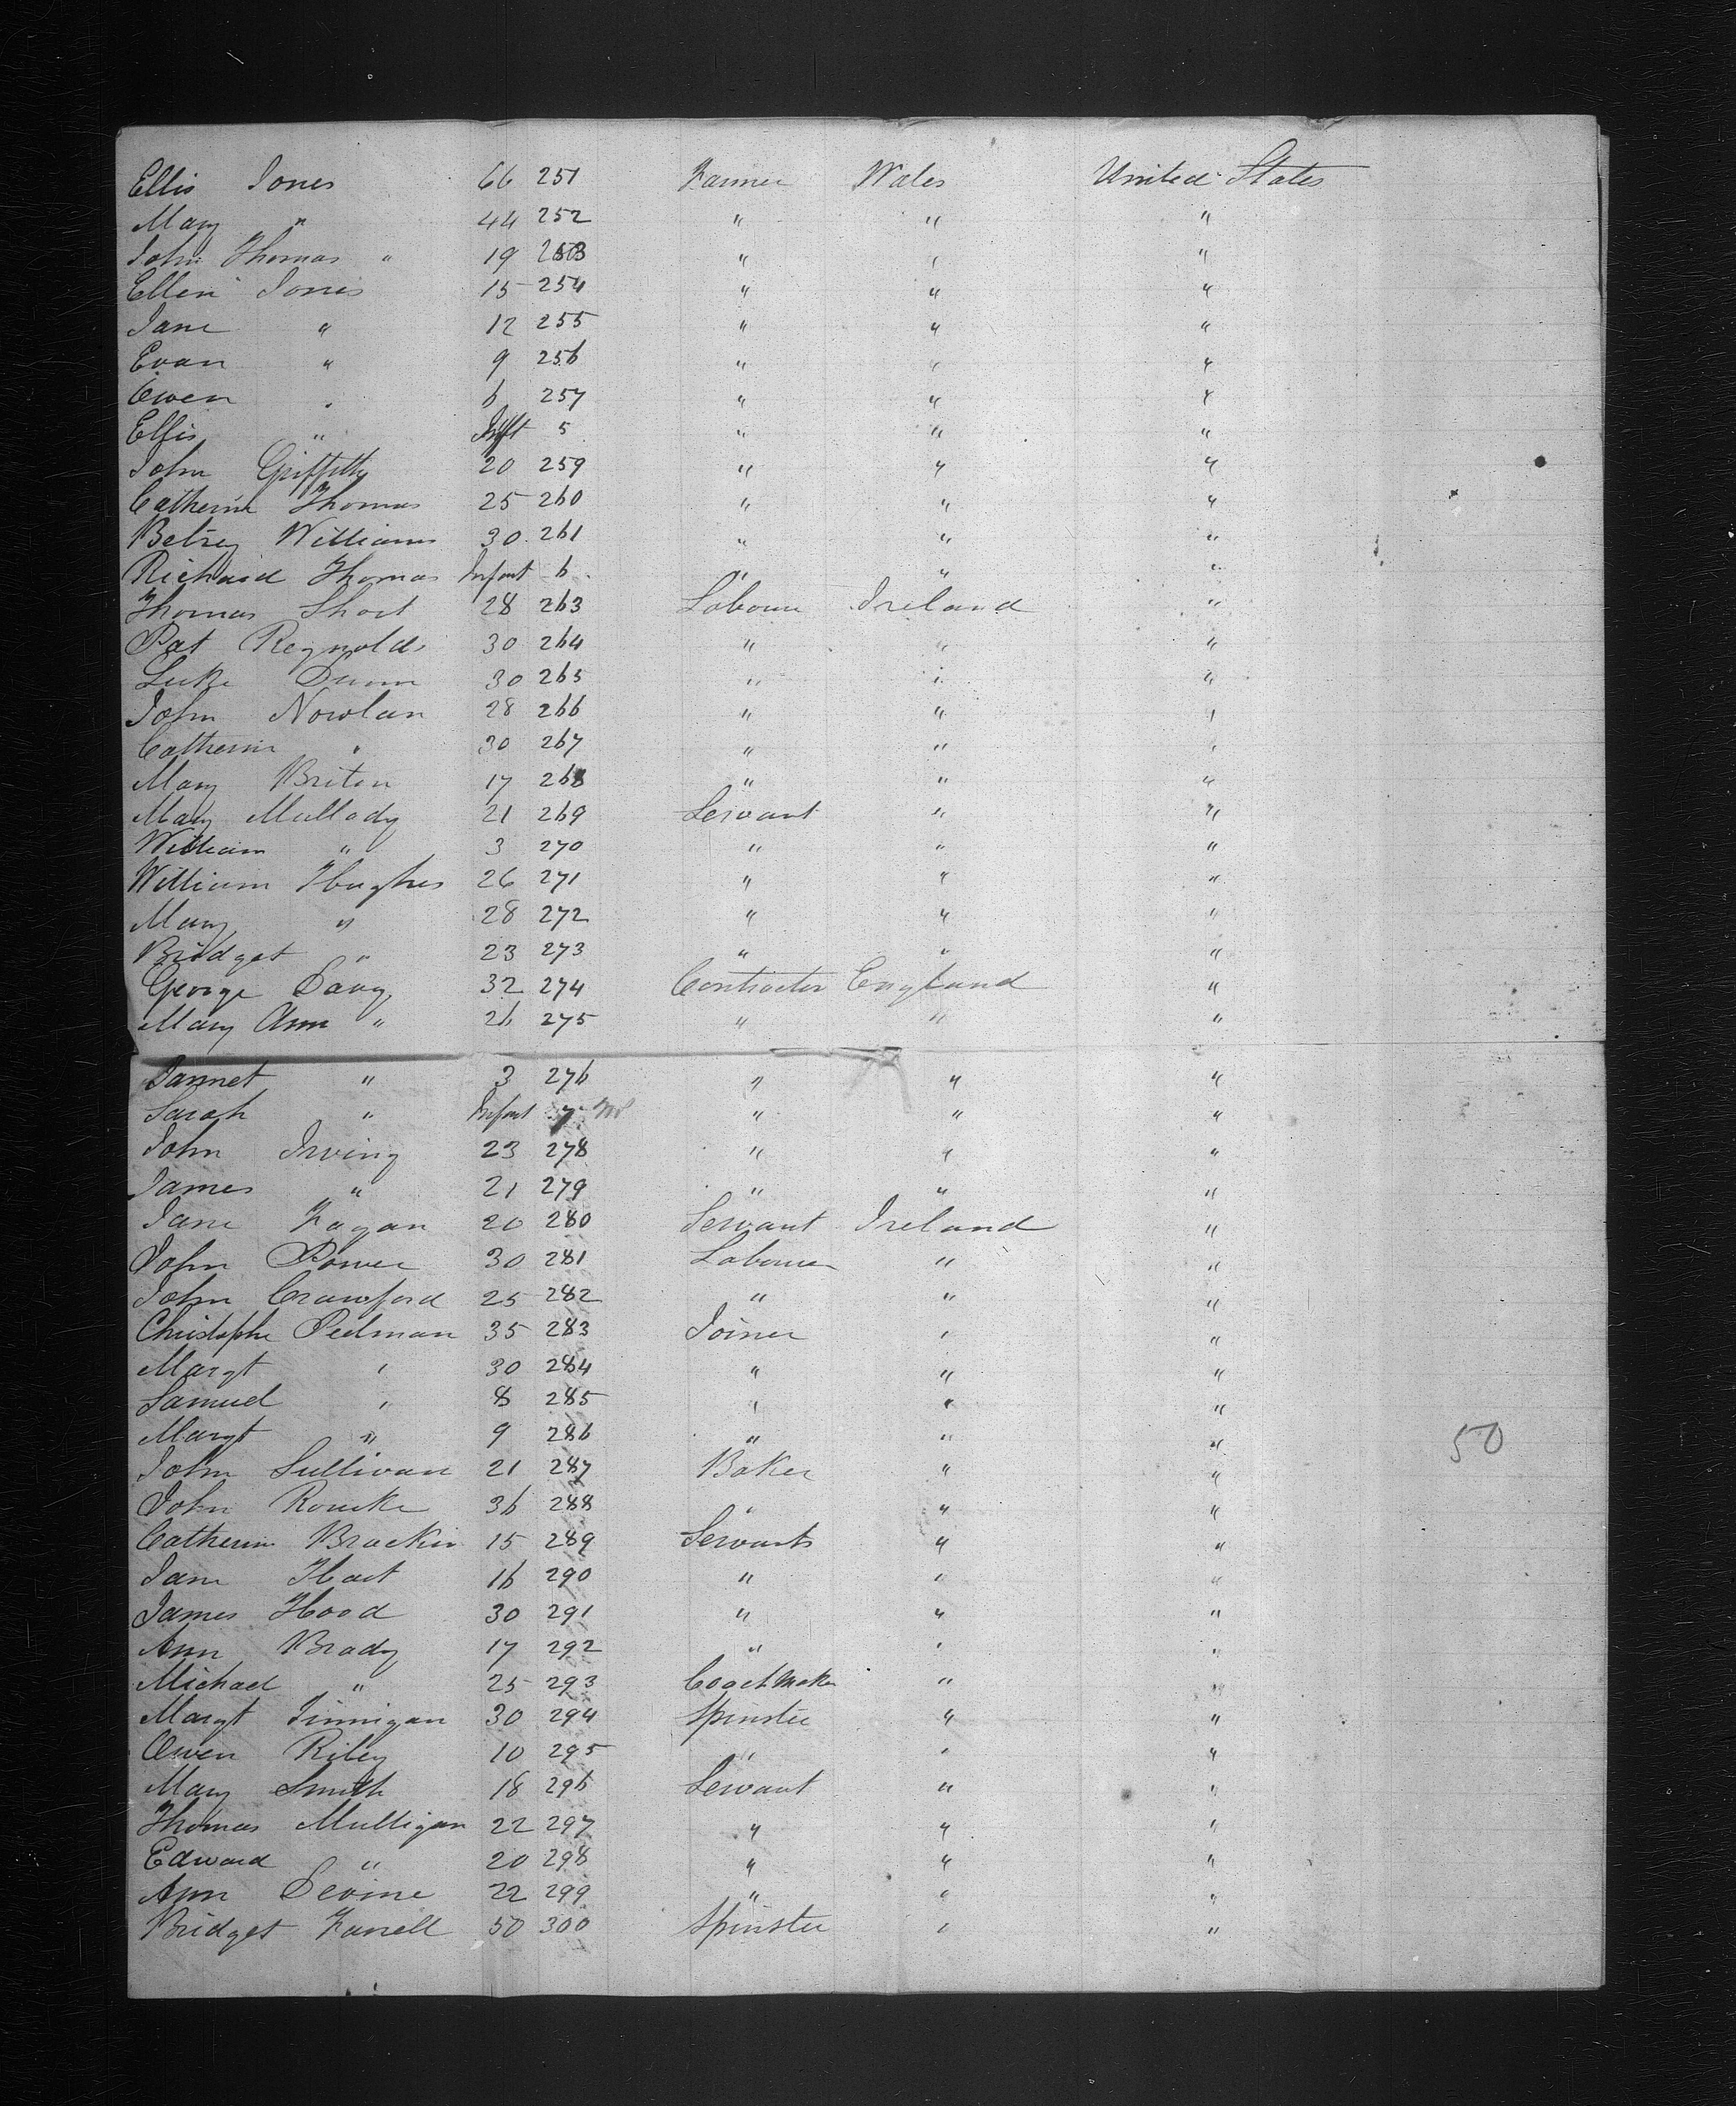 Ellis Jones 66 251 Farmer Wales United States
Mary " 44 252 " " "
John Thomas " 19 253 " " "
Ellen Jones 15 254 " " "
Jane " 12 255 " " "
Evan " 9 256 " " "
Owen " 6 257 " " "
Ellis " Inft 5 " " "
John Griffith 20 259 " " "
Catherine Thomas 25 260 " " "
Betsey Williams 30 261 " " "
Richard Thomas Infant 6 " " "
Thomas Short 28 263 Labourer Ireland "
Pat Reynolds 30 264 " " "
Luke Dunn 30 265 " " "
John Nowlan 28 266 " " "
Catherin " 30 267 " " "
Mary Briton 17 268 " " "
Mary Mullady 21 269 Servant " "
William " 3 270 " " "
William Hughes 26 271 " " "
Mary " 28 272 " " "
Bridget " 23 273 " " "
George Davy 32 274 Contractor England "
Mary Ann " 26 275 " " "
Jannet " 3 276 " " "
Sarah " Infant 7 " " "
John Irving 23 278 " " "
James " 21 279 " " "
Jane Fagan 20 280 Servant Ireland "
John Power 30 281 Labourer " "
John Crawford 25 282 " " "
Christophe Pedman 35 283 Joiner " "
Margt " 30 284 " " "
Samuel " 8 285 " " "
Margt " 9 286 " " "
50
John Sullivan 21 287 Baker " "
John Rourke 36 288 " " "
Catherin Brackin 15 289 Servants " "
Jane Hart 16 290 " " "
James Hood 30 291 " " "
Ann Brady 17 292 " " "
Michael " 25 293 Coachmaker " "
Margt Finnigan 30 294 Spinster " "
Owen Riley 10 295 " " "
Mary Smith 18 296 Servant " "
Thomas Mulligan 22 297 " " "
Edward " 20 298 " " "
Ann Devine 22 299 " " "
Bridget Farrell 50 300 Spinster " "